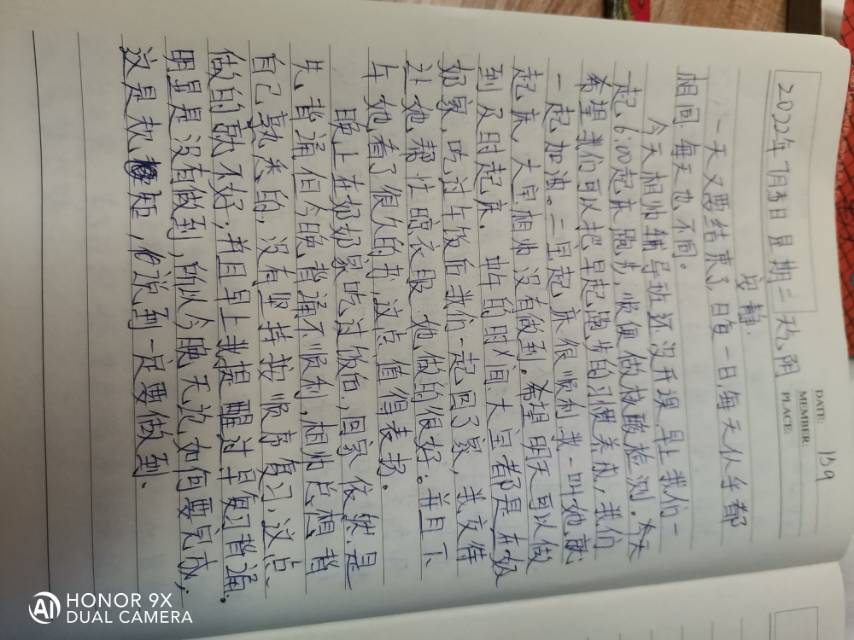 DATE: 139
MEMBER:
PLACE:
2022年7月 日 星期二 天气:阴
安静
一天又要结束了,日复一日,每天似乎都
相同,每天也不同。
今天相帅辅导班还没开课,早上我们一
起6:00起床跑步,顺便做核酸检测。今天
希望我们可以把早起跑步的习惯养成,我们
一起加油。二早起床很顺利我一叫她就
起床,大宝相帅没有做到。希望明天可以做
到及时起床。 的时间大宝都是在奶
奶家,吃过午饭后我们一起回了家,我交待
让她帮忙晾衣服,她做的很好。并且下
午她看了很久的书,这点值得表扬。
晚上在奶奶家吃过饭后,回家依然是
先背诵但今晚背诵不顺利,相帅总想背
自己熟悉的,没有坚持按顺序复习,这点
做的就不好,并且早上我提醒过早复习背诵。
明显是没有做到,所以今晚无论如何要完成,
这是规矩,也说到一定要做到.
AI HONOR 9X
DUAL CAMERA